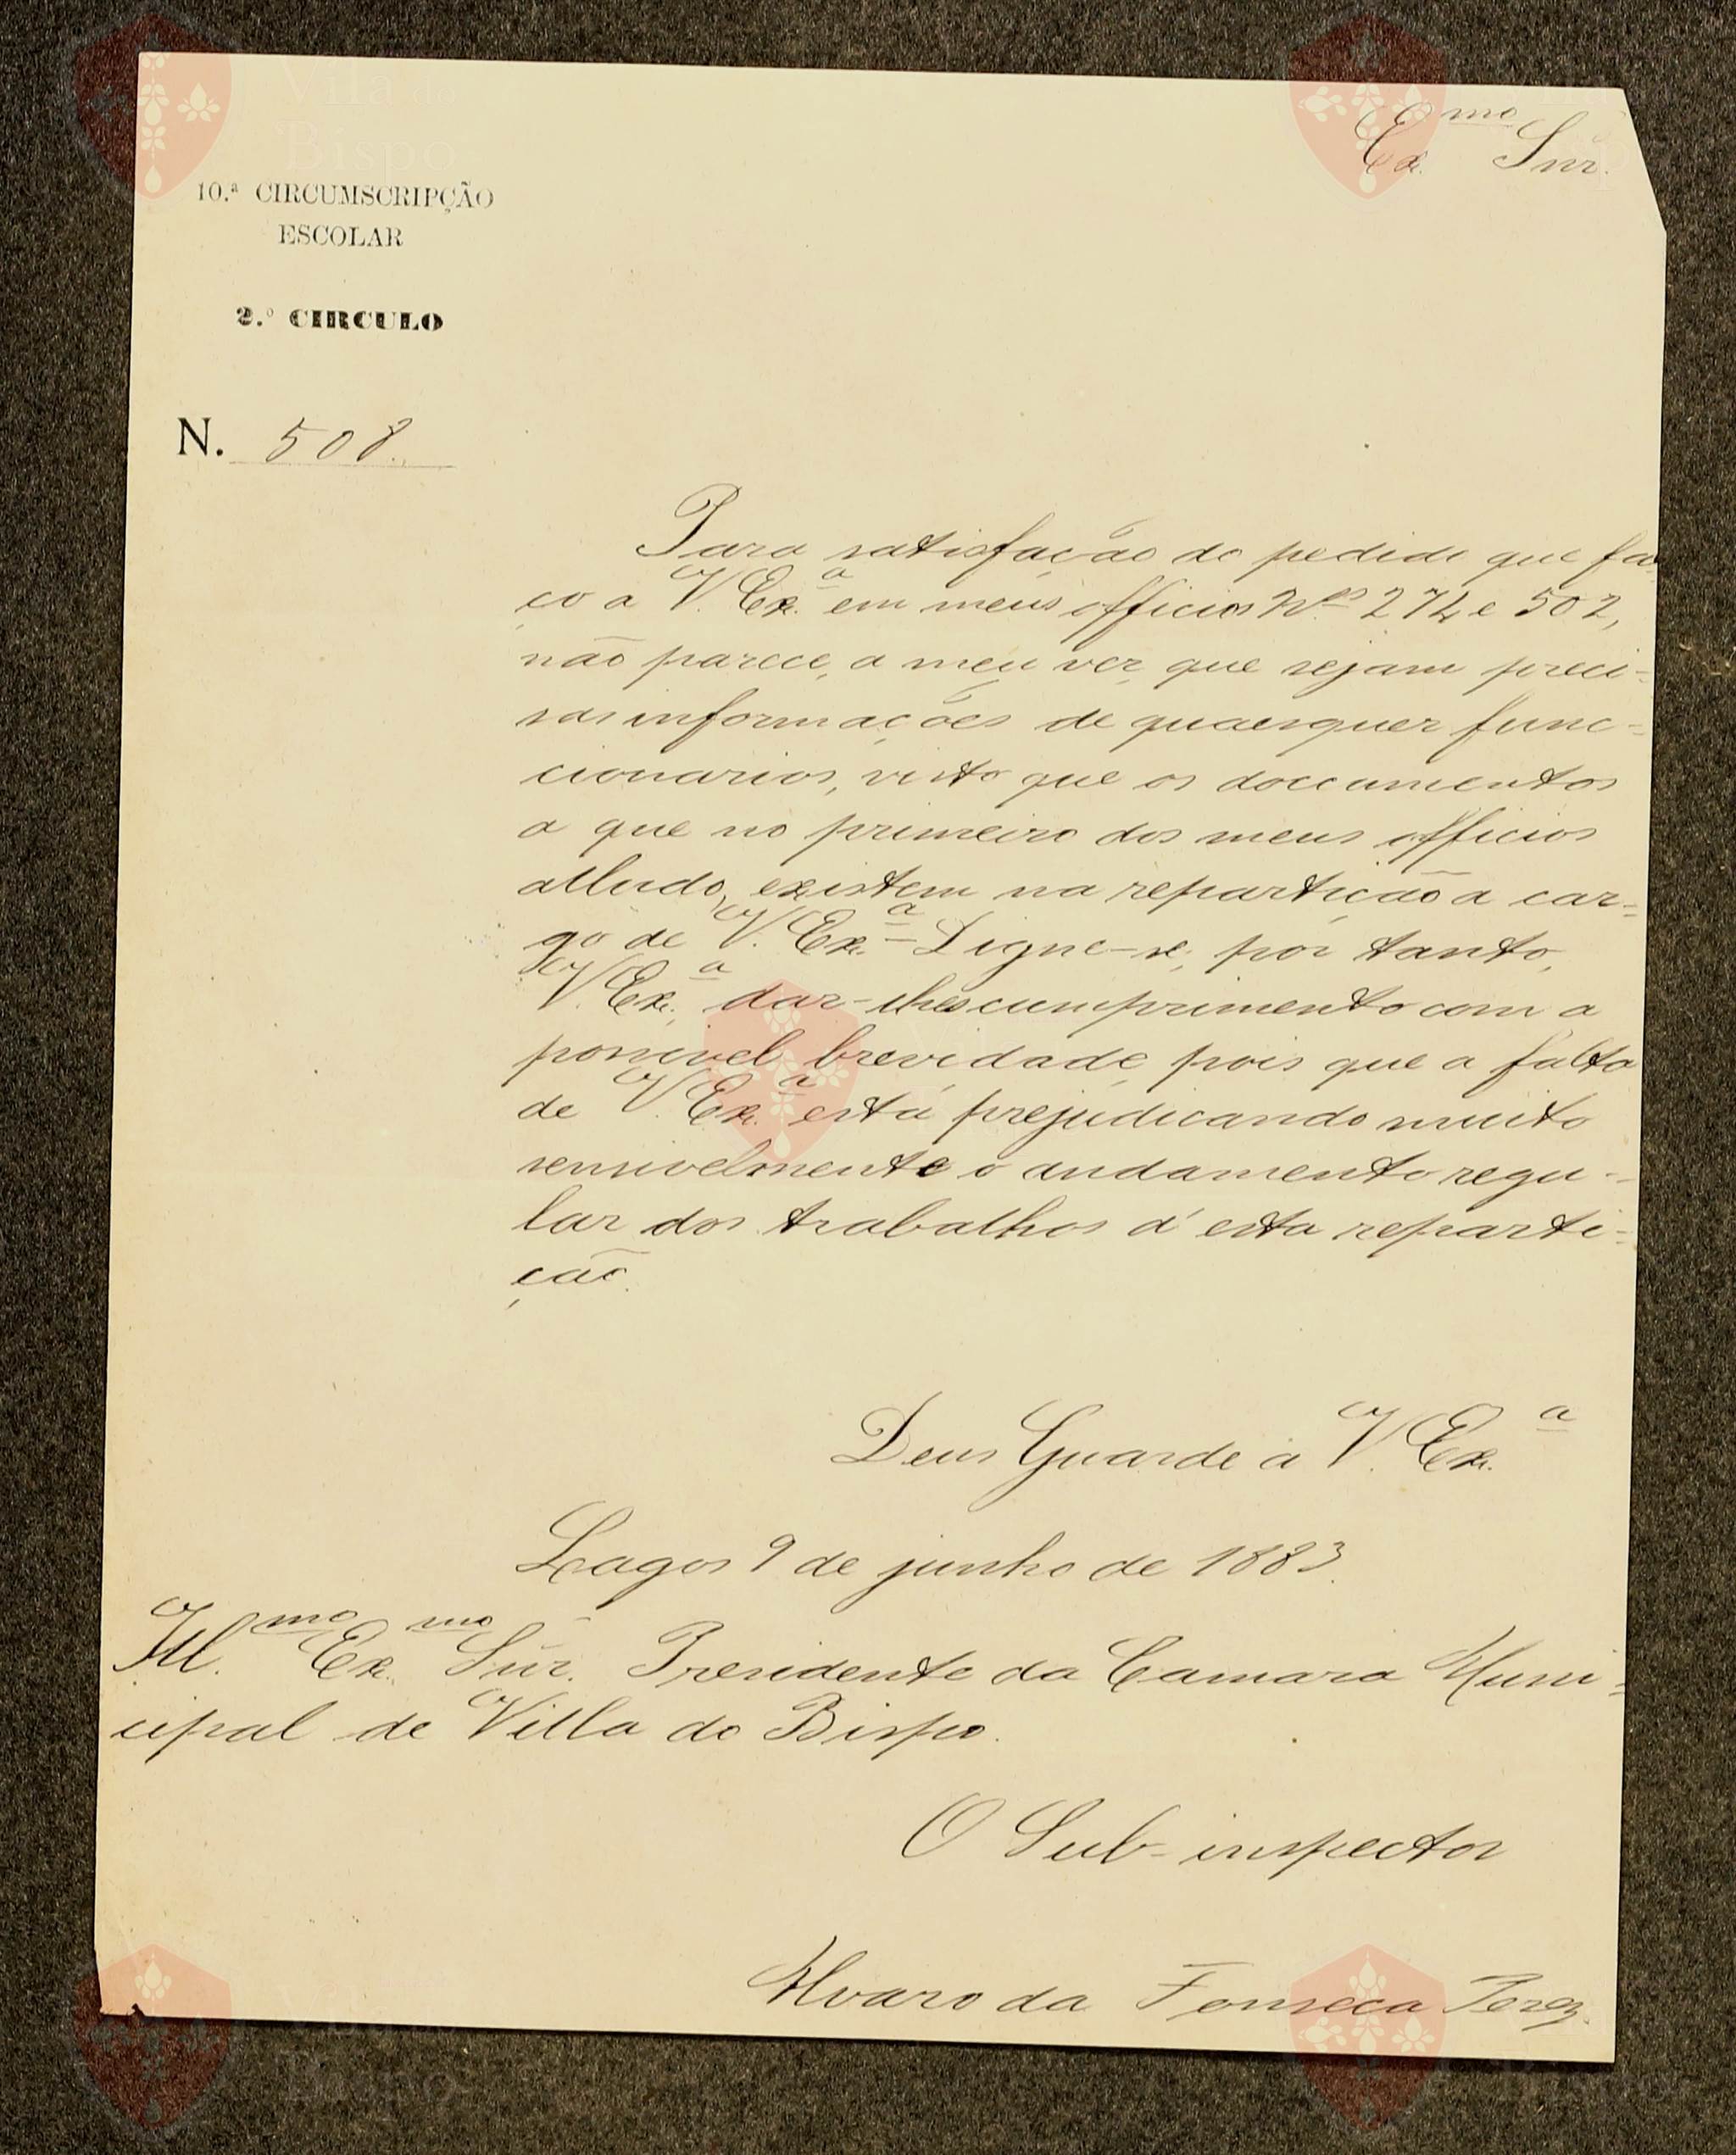 Ex.mo Snr.
10.ª CIRCUMSCRIPÇÃO
ESCOLAR
2.º CIRCULO
N. 508.
Para satisfação do pedido que fa-
ço a V. Ex.ª em meus officios Nos 274 e 502,
não parece, a meu ver, que sejam preci-
sas informações de quaesquer func-
cionarios, visto que os doccumentos
a que no primeiro dos meus officios
alludo, existem na repartição a car-
go de V. Ex.ª – Digne-se, por tanto,
V. Ex.ª, dar-lhes cumprimento com a
possivel brevidade, pois que a falta
de V. Ex.ª está prejudicando muito
sensivelmente o andamento regu-
lar dos trabalhos d'esta reparti-
ção.
Deus Guarde a V. Ex.ª
Lagos 9 de junho de 1883.
Ill.mo Ex.mo Snr. Presidente da Camara Muni-
cipal de Villa do Bispo.
O Sub-inspector
Alvaro da Fonseca Perez.
Vila do
Bispo